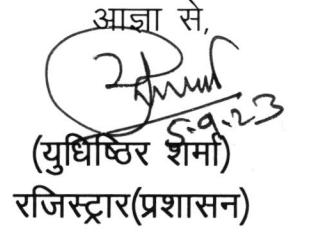 आज्ञा से,
5.9.23
(युधिष्ठिर शर्मा)
रजिस्ट्रार(प्रशासन)